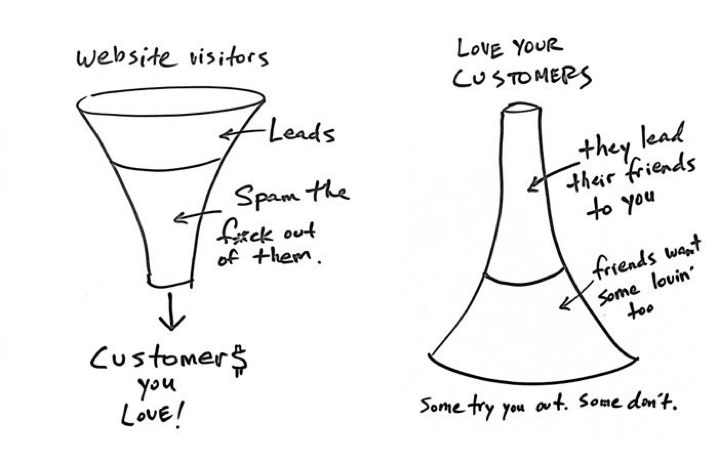 website visitors
Leads
Spam the
f*ck out
of them.
Customer$
you
LOVE!
LOVE YOUR
CUSTOMERS
they lead
their friends
to you
friends want
some lovin'
too
Some try you out. Some don't.